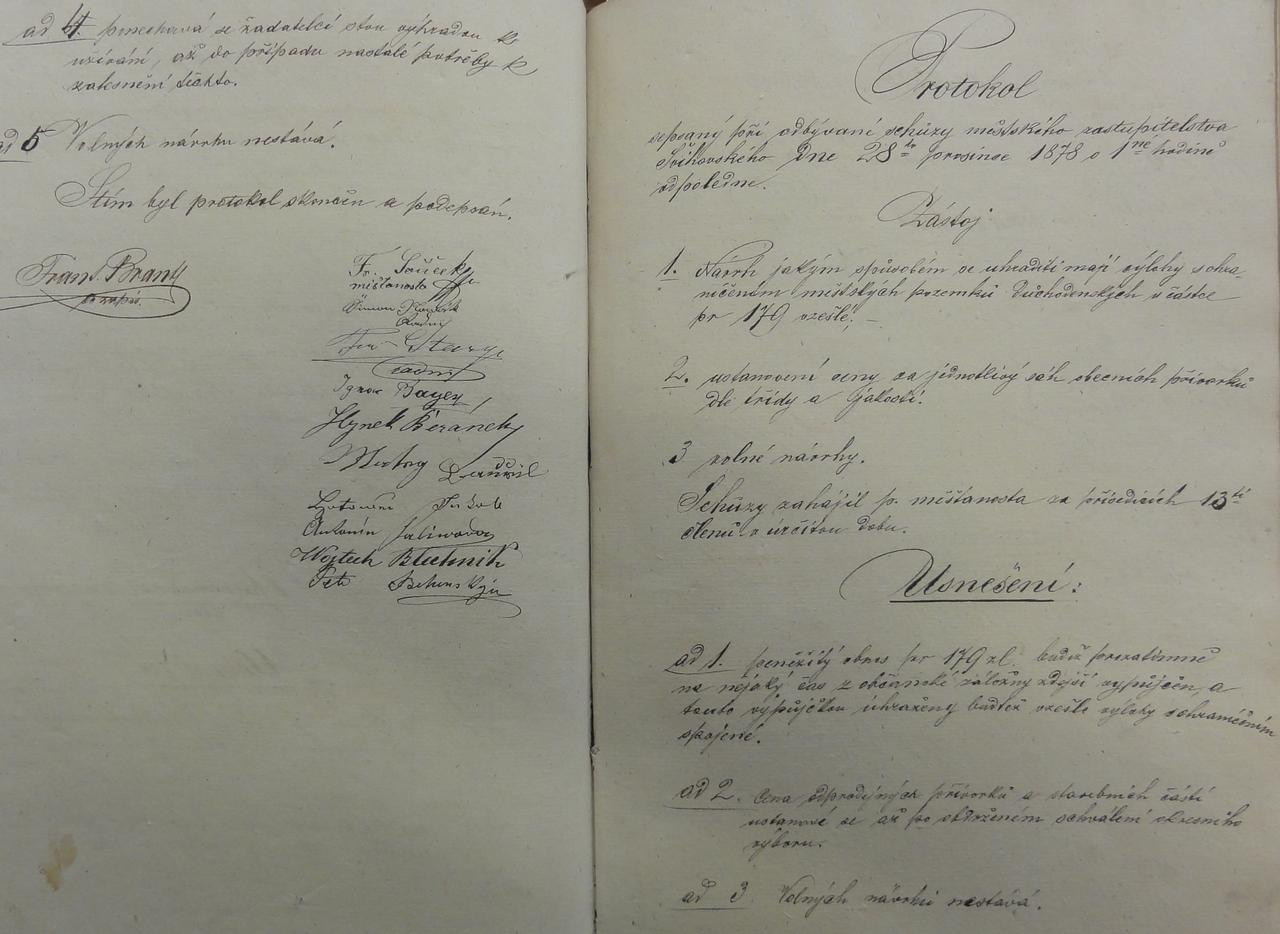 ad 4. ponechává se žadatelci stou výhradou k
užívání, až do případu nastalé potřeby k
zalesnění těchto.
ad 5 Volných návrhu nestává.
Stím byl protokol skončen a podepsán.
Fran. Brant
Fr. Souček
měšťanosta
radní
radní
Ignac Bayer
Hynek Beránek
Antonín
Wojtech Blechnik
Petr
Protokol
sepsaný při odbývané schůzy městského zastupitelstva
Švihovského dne 28ho prosince 1878 o 1né hodině
odpoledne.
Zástoj
1. Návrh jakým spůsobem se uhraditi mají výlohy s ohra-
ničením městských pozemků Důchodenských v částce
pr 179 vzešlé.-
2. ustanovení ceny za jednotlivý sáh obecních přívorků
dle třídy a jakosti.
3 volné návrhy.
Schůzy zahájil p. měšťanosta za přísedicích 13ti
členů v určitou dobu.
Usnešení:
ad 1. peněžitý obnos pr 179 zl. budiž prozatímně
na nějaký čas z občanské záložny zdejší vypůjčen, a
touto výpůjčkou uhraženy buďtež vzešlé výlohy sohraničením
spojené.
ad 2. Cena odprodejných přívorků a stavebních částí
ustanoví se až po obdrženém schválení okresního
výboru.
ad 3. Volných návrhů nestává.